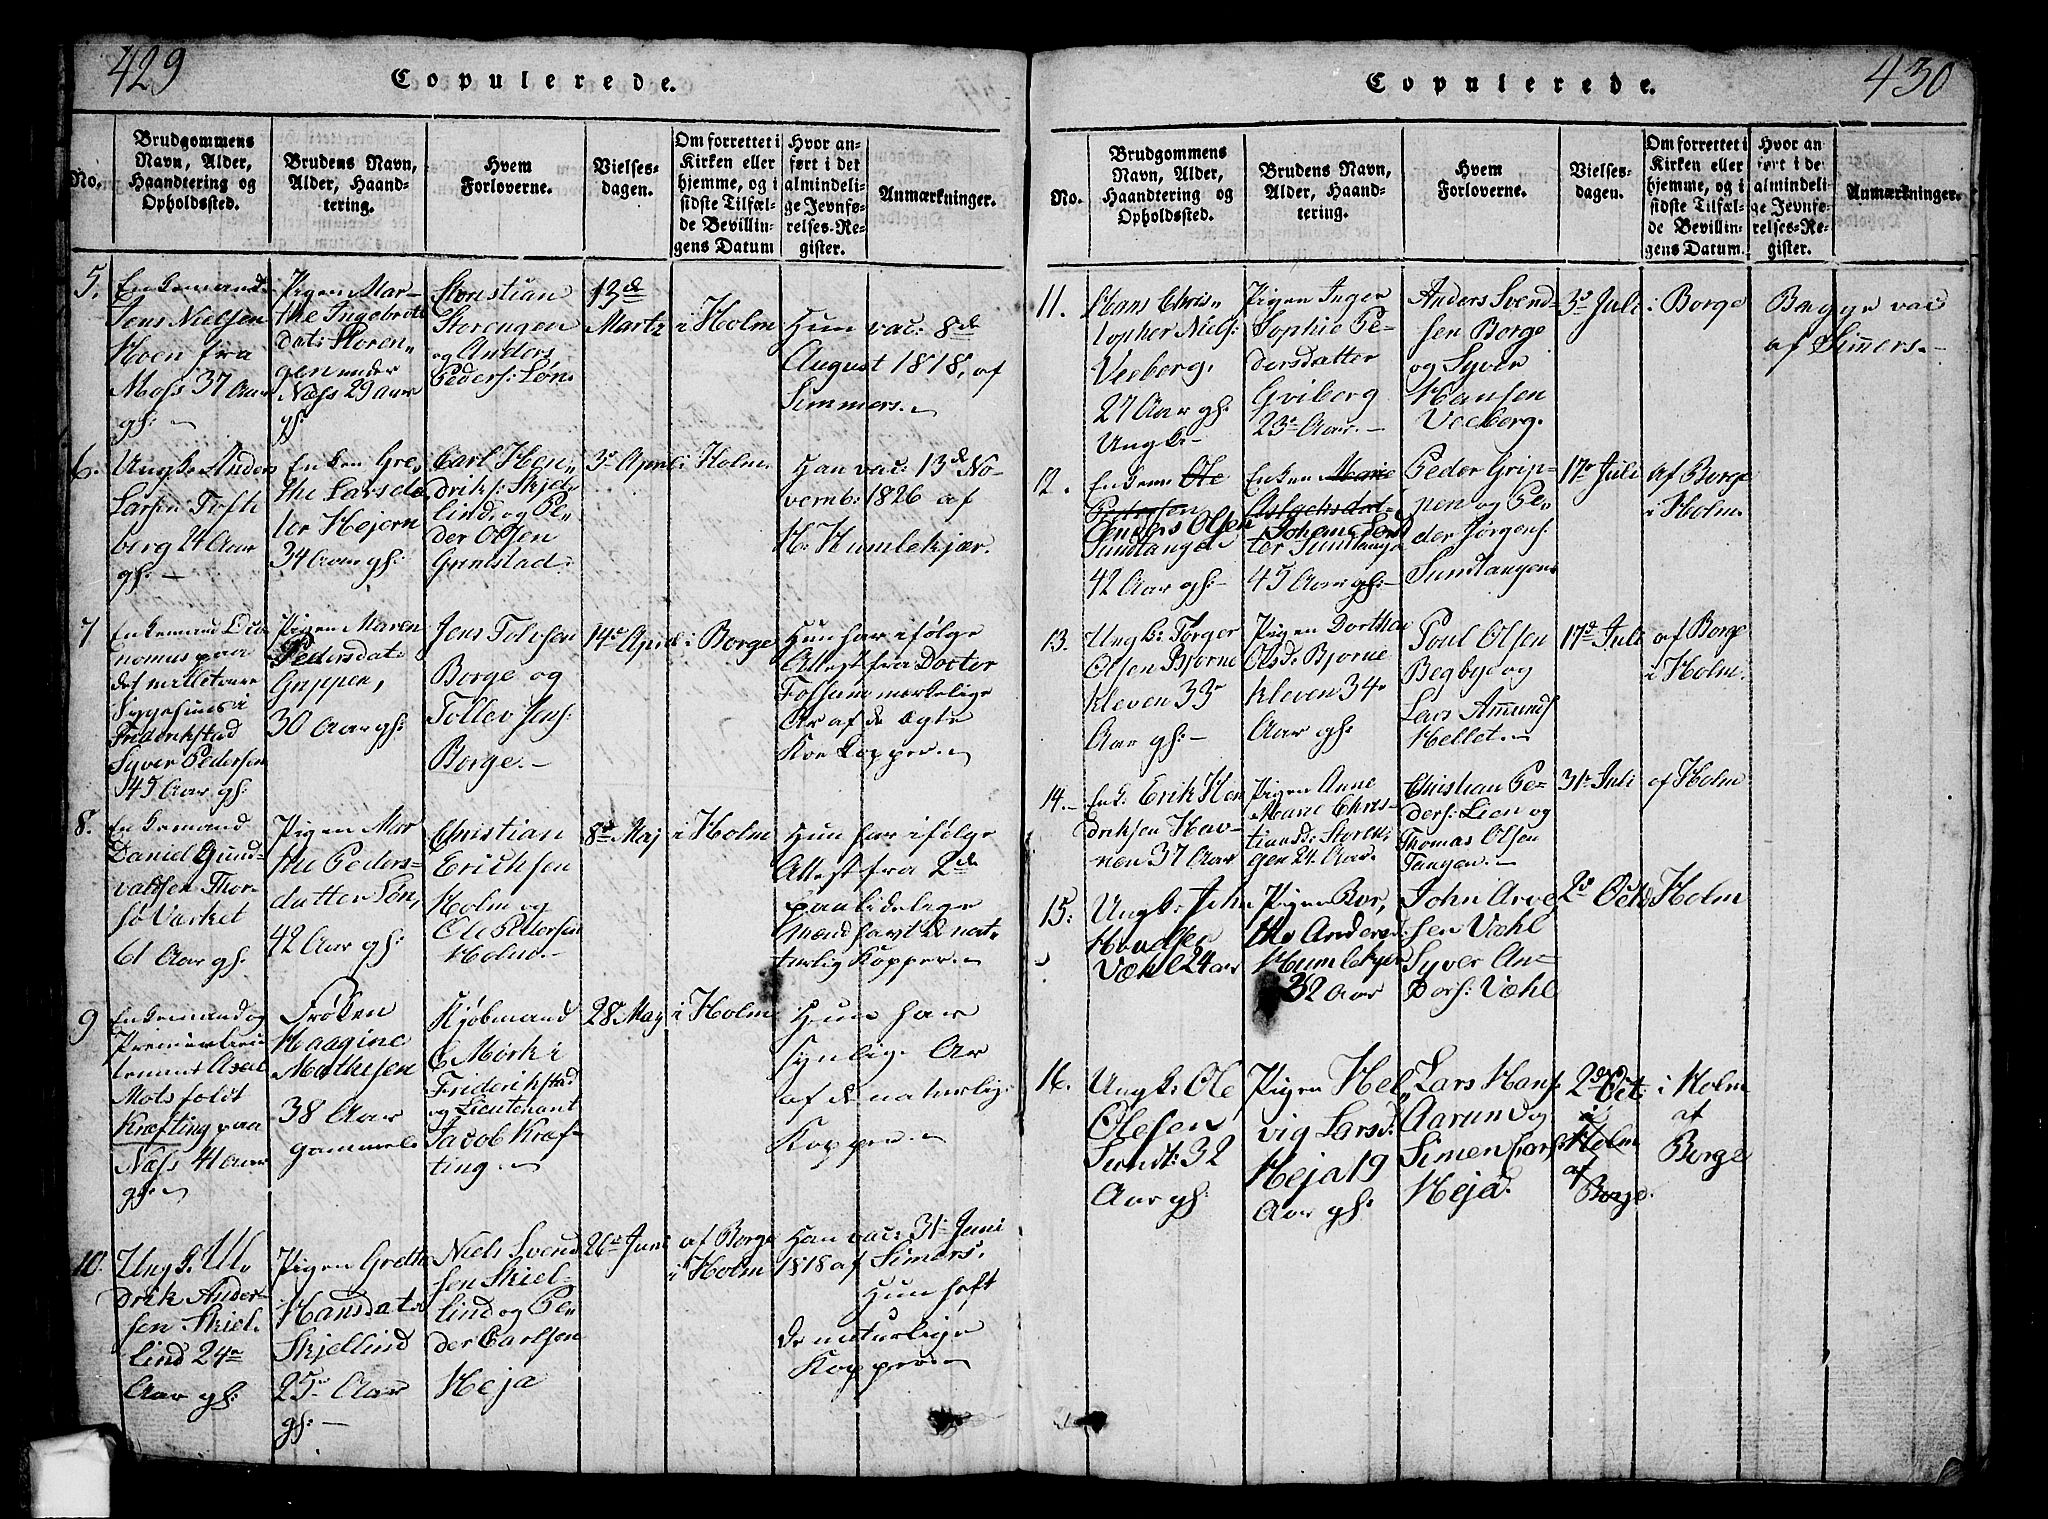 429
Copulerede.
No.
Brudgommens
Navn, Alder,
Haandtering og
Opholdssted.
Brudens Navn,
Alder, Haand-
tering.
Hvem
Forloverne.
Vielses-
dagen.
Om forrettet i
Kirken eller
hjemme, og i
sidste Tilfæl-
de Bevillin-
gens Datum
Hvor an-
ført i det
almindeli-
ge Jevnfø-
relses-Re-
gister.
Anmærkninger.
5.
Enkemand
Jens Nielsen
Hoen fra
Moss 37 Aar
gl: -
Pigen Mar-
the Ingebrets
dat: Storen-
gen under
Næss 29 aar
gl:
Christian
Storengen
og Anders
Peders: Løn.
13de
Martz
i Holm
Hun vac: 8de
August 1818, af
Simmers.
6.
Ungk. Anders
Larsen Tofte
berg 24 Aar
gl: -
Enken Gre-
the Larsda
ter Hejern
34 Aar gl:
Carl Hen-
driks: Skjel
lind, og Pe-
der Olsen
Grimstad.
3e April
i Holm
Han vac: 13de No-
vemb: 1826 af
H: Humlekjær.
7
Enkemand Oeco
nomus paa
det militaire
Sygehuus i
Friderikstad
Syver Pedersen
45 Aar gl:
Pigen Maren
Pedersdat.
Grippen,
30 Aar gl:
Jens Tolvsen
Borge og
Tollev Jens:
Borge. -
14e April
i Borge
Hun har ifølge
Attest fra Docter
Folsum mærkelige
Ar af de ægte
Koe Kopper.
8.
Enkemand
Daniel Gund-
valdsen Thor-
sø Værket
61 Aar gl:
Pigen Mar
the Peders-
datter Løn,
42 Aar gl:
Christian
Erichsen
Holm og
Ole Pedersen
Holm. -
8de Maj
i Holm
Hun har ifølge
Attest fra 2de
paalidelege
Mænd havt de nat-
turlig Kopper.
9
Enkemand og
Premierlieu-
tenant Axel
Motzfeldt
Kræfting paa
Næss 41 Aar
gl:
Frøken
Haagine
Mathisen
38 Aar
gammel
Kjøbmand
C Mørk i
Friderikstad
og Lieutenant
Jacob Kræf-
ting.
28 Maj
i Holm
Hun har
synlige Ar
af de naturlige
Kopper.
10.
Ungk. Ul-
drik Ander-
sen Skjel-
lind 24e
Aar gl:
Pigen Grethe
Hansdater
Skjellind
25e Aar
gl: -
Niels Svend
sen Skiel-
lind og Pe-
der Carlsen
Heja
26e Juni
af Borge
i Holm
Han vac: 31e Juni
1818 af Simers.
Hun haft
de naturlige
Kopper.
430
Copulerede.
No.
Brudgommens
Navn, Alder,
Haandtering og
Opholdssted.
Brudens Navn,
Alder, Haand-
tering.
Hvem
Forloverne.
Vielses-
dagen.
Om forrettet i
Kirken eller
hjemme, og i
sidste Tilfæl-
de Bevillin-
gens Datum.
Hvor an
ført i de
almindeli
ge Jevnfø-
relses-Re-
gister.
Anmærkninger.
11.
Hans Chris-
topher Niels:
Veeberg,
27 Aar gl:
Ungk.
Pigen Inger
Sophie Pe-
dersdatter
Qviberg
23e Aar. -
Anders Svend-
sen Borge
og Syver
Hansen
Veeberg.
3e Juli
i Borge
Begge vac
af Simers. -
12.
Enkem Ole
Petersen
Anders Olsen
Sundtangen
42 Aar gl: -
Enken Marie
Aslachsdat-
Johane Lars
ter Sundtang
45 Aar gl: -
Peder Grip-
pen og Pe-
der Jørgens:
Sundtangen
17e Juli
af Borge
i Holm
13.
Ungk: Torger
Olsen Bjørne
kleven 33e
Aar gl: -
Pigen Dorthea
Olsd. Bjørne
kleven 34e
Aar gl:
Poul Olsen
Begbye og
Lars Amunds
Hellet. -
17e Juli
af Borge
i Holm.
14. -
Enk. Erik Hen
driksen Hav-
nen 37 Aar
Pigen Anne
Marie Chris-
tiansd: Storen-
gen 24 Aar.
Christian Pe-
ders: Lien og
Thomas Olsen
Tangen. -
31e Juli
af Holm
15:
Ungk: Joh
Væhl 24 ar
Pigen Ber,
the Andersd:
Humlekjær
32 Aar
John Arve
sen Væhl
Syver An-
ders: Væhl
2e Octb
Holm
16.
Ungk: Ole
Olesen
Sundt: 32
Aar gl:
Pigen Hel
vig Larsd.
Heja 19
Aar gl:
Lars Hans
Aarum og
Simen Carls
Heja.
2de Oct:
i
Holm
af
Borge.
i Holm
af
Borge